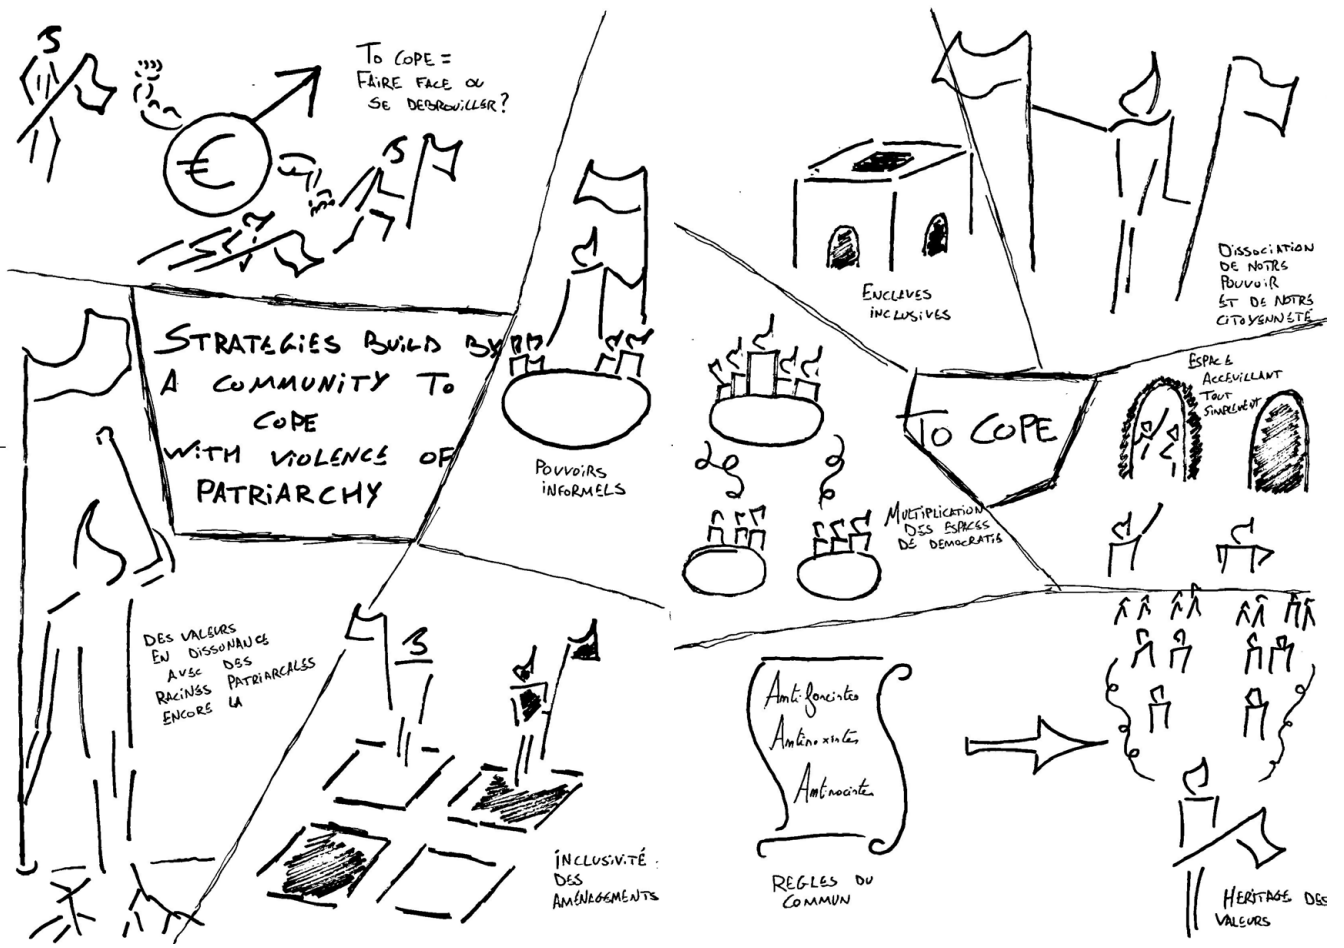 TO COPE =
FAIRE FACE OU
SE DEBROUILLER?
STRATEGIES BUILD BY
A COMMUNITY TO
COPE
WITH VIOLENCE OF
PATRIARCHY
POUVOIRS
INFORMELS
DES VALEURS
EN DISSONANCE
AVEC DES
RACINES PATRIARCALES
ENCORE LA
INCLUSIVITÉ
DES
AMÉNAGEMENTS
ENCLAVES
INCLUSIVES
DISSOCIATION
DE NOTRE
POUVOIR
ET DE NOTRE
CITOYENNETÉ
TO COPE
ESPACE
ACCEUILLANT
TOUT
SIMPLEMENT
MULTIPLICATION
DES ESPACES
DE DEMOCRATIE
Antifascistes
Antisexistes
Antiracistes
REGLES DU
COMMUN
HERITAGE DES
VALEURS